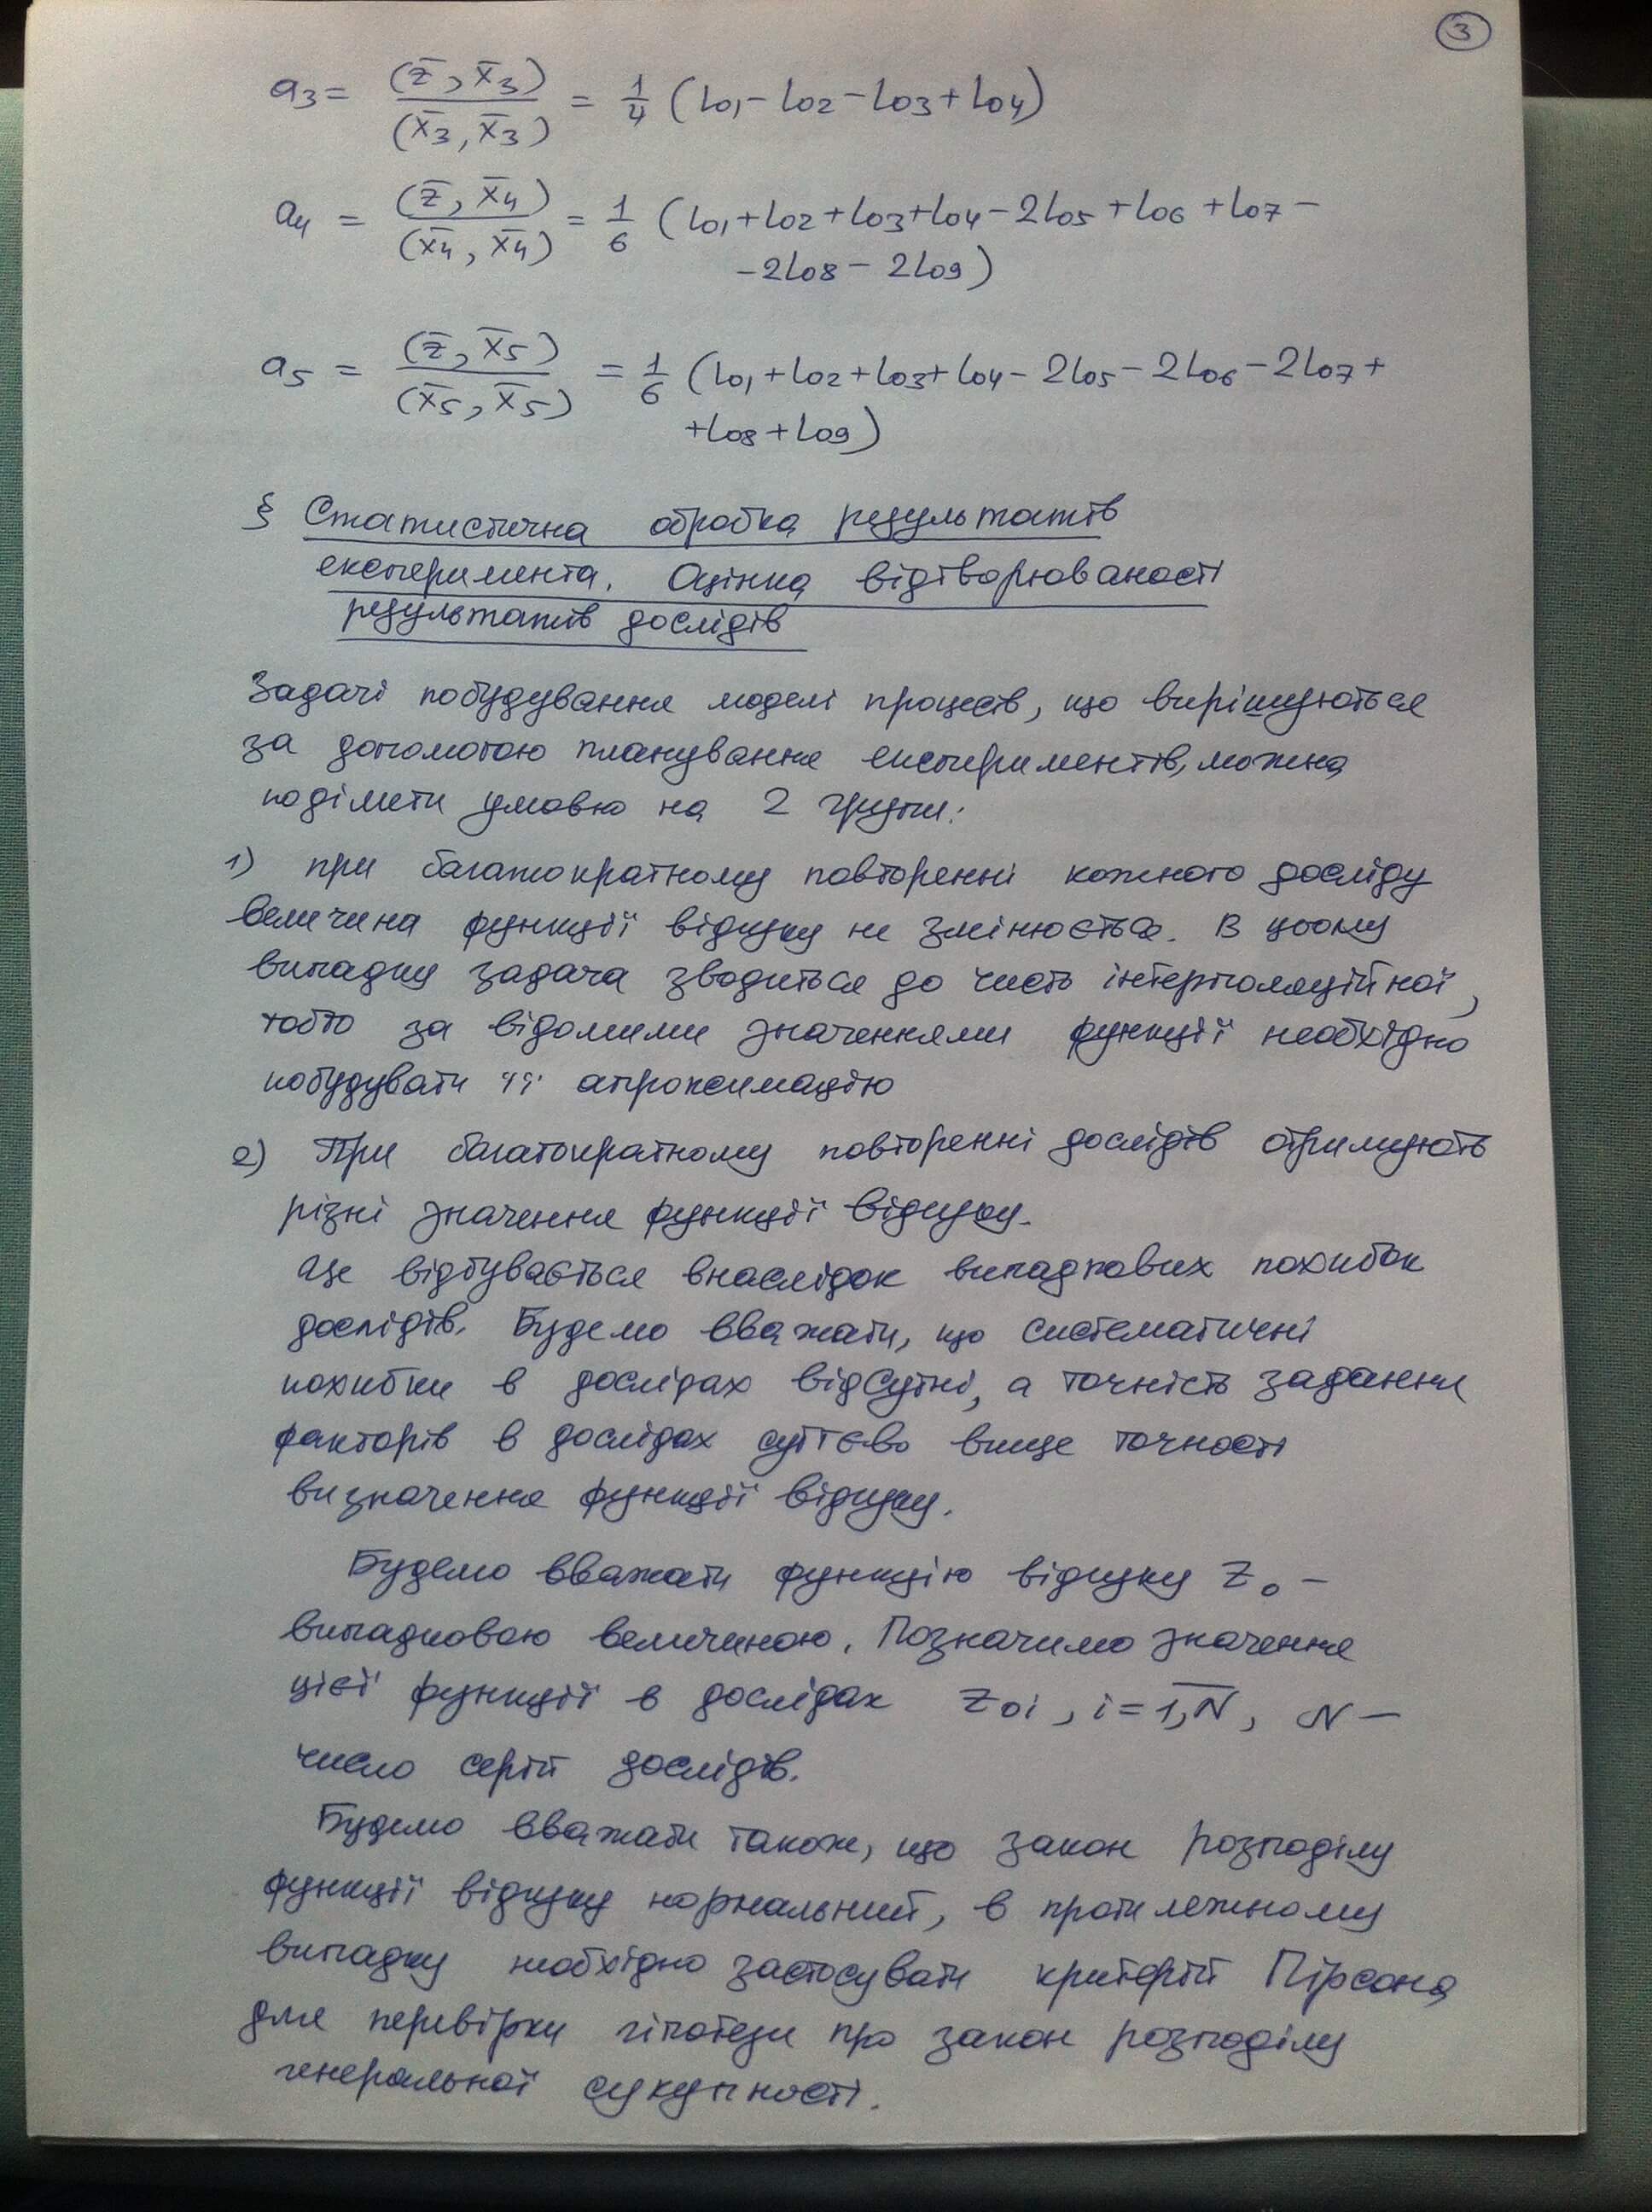 3
a₃ = (z̄, x̄₃) / (x̄₃, x̄₃) = 1/4 (z₀₁ - z₀₂ - z₀₃ + z₀₄)
a₄ = (z̄, x̄₄) / (x̄₄, x̄₄) = 1/6 (z₀₁ + z₀₂ + z₀₃ + z₀₄ - 2z₀₅ + z₀₆ + z₀₇ -
- 2z₀₈ - 2z₀₉)
a₅ = (z̄, x̄₅) / (x̄₅, x̄₅) = 1/6 (z₀₁ + z₀₂ + z₀₃ + z₀₄ - 2z₀₅ - 2z₀₆ - 2z₀₇ +
+ z₀₈ + z₀₉)
§ Статистична обробка результатів
експеримента. Оцінка відтворюваності
результатів дослідів
Задачі побудування моделі процесів, що вирішуються
за допомогою планування експериментів, можна
поділити умовно на 2 групи:
1) при багатократному повторенні кожного досліду
величина функції відгуку не змінюється. В цьому
випадку задача зводиться до чисть інтерполяційної,
тобто за відомими значеннями функції необхідно
побудувати її апроксимацію
2) При багатократному повторенні дослідів отримують
різні значення функції відгуку.
Це відбувається внаслідок випадкових похибок
дослідів. Будемо вважати, що систематичні
похибки в дослідах відсутні, а точність задання
факторів в дослідах суттєво вище точності
визначення функції відгуку.
Будемо вважати функцію відгуку z₀ –
випадковою величиною. Позначимо значення
цієї функції в дослідах z₀ᵢ, i = 1,N̅, N –
число серій дослідів.
Будемо вважати також, що закон розподілу
функції відгуку нормальний, в протилежному
випадку необхідно застосувати критерій Пірсона
для перевірки гіпотези про закон розподілу
генеральної сукупності.